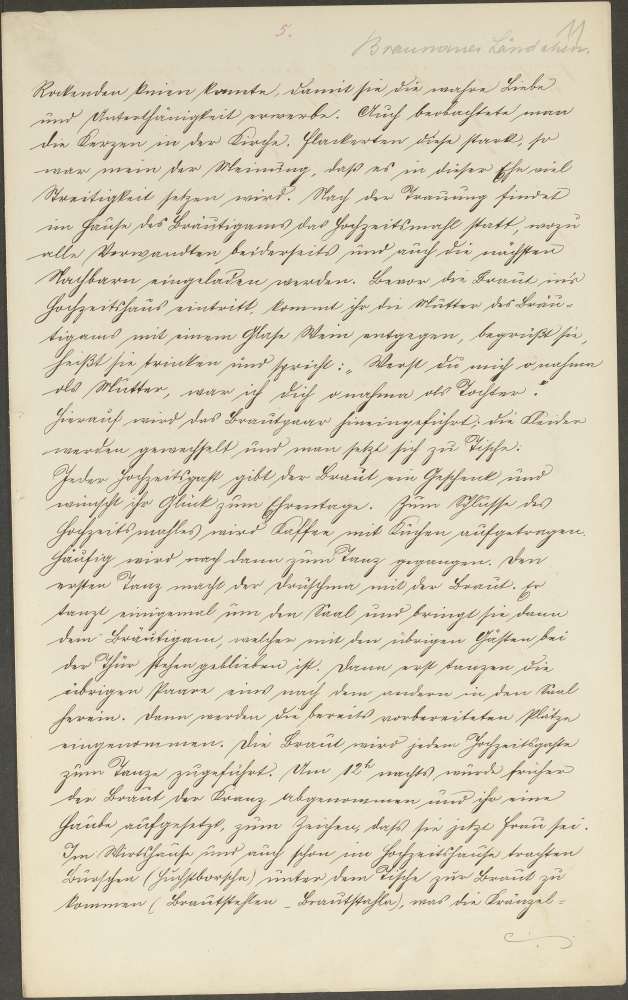 5.
11
Braunauer Ländchen.
Rockenden knien konnte, damit sie die wahre Liebe
und Unterthänigkeit erwerbe. Auch beobachtete man
die Kerzen in der Kirche. Flackerten diese stark, so
war mein der Meinung, daß es in dieser Ehe viel
Streitigkeit setzen wird. Nach der Trauung findet
im Hause des Bräutigams das Hochzeitsmahl statt, wozu
alle Verwandten beiderseits und auch die nächsten
Nachbarn eingeladen werden. Bevor die Braut in's
Hochzeitshaus eintritt, kommt ihr die Mutter des Bräu-
tigams mit einem Glase Wein entgegen, begrüßt sie,
heißt sie trinken und spricht: „Werst du mich o nahma
ols Mutter, war ich dich onahma ols Tochter."
Hierauf wird das Brautpaar hineingeführt; die Kleider
werden gewechselt und man setzt sich zu Tische.
Jeder Hochzeitsgast gibt der Braut ein Geschenk und
wünscht ihr Glück zum Ehrentage. Zum Schlusse des
Hochzeitsmahles wird Kaffee mit Kuchen aufgetragen.
Häufig wird nach dann zum Tanz gegangen. Den
ersten Tanz macht der Druschma mit der Braut. Er
tanzt einigemal um den Saal und bringt sie dann
dem Bräutigam, welcher mit den übrigen Gästen bei
der Thür stehen geblieben ist. Dann erst tanzen die
übrigen Paare eins nach dem andern in den Saal
herein. Dann werden die bereits vorbereiteten Plätze
eingenommen. Die Braut wird jedem Hochzeitsgaste
zum Tanze zugeführt. Um 12h nachts wurde früher
der Braut der Kranz abgenommen und ihr eine
Haube aufgesetzt, zum Zeichen, daß sie jetzt Frau sei.
Im Wirtshause und auch schon im Hochzeitshause trachten
Burschen (Huchstborscha) unter dem Tische zur Braut zu
kommen (Brautstehlen – Brautstahla), was die Kränzel-